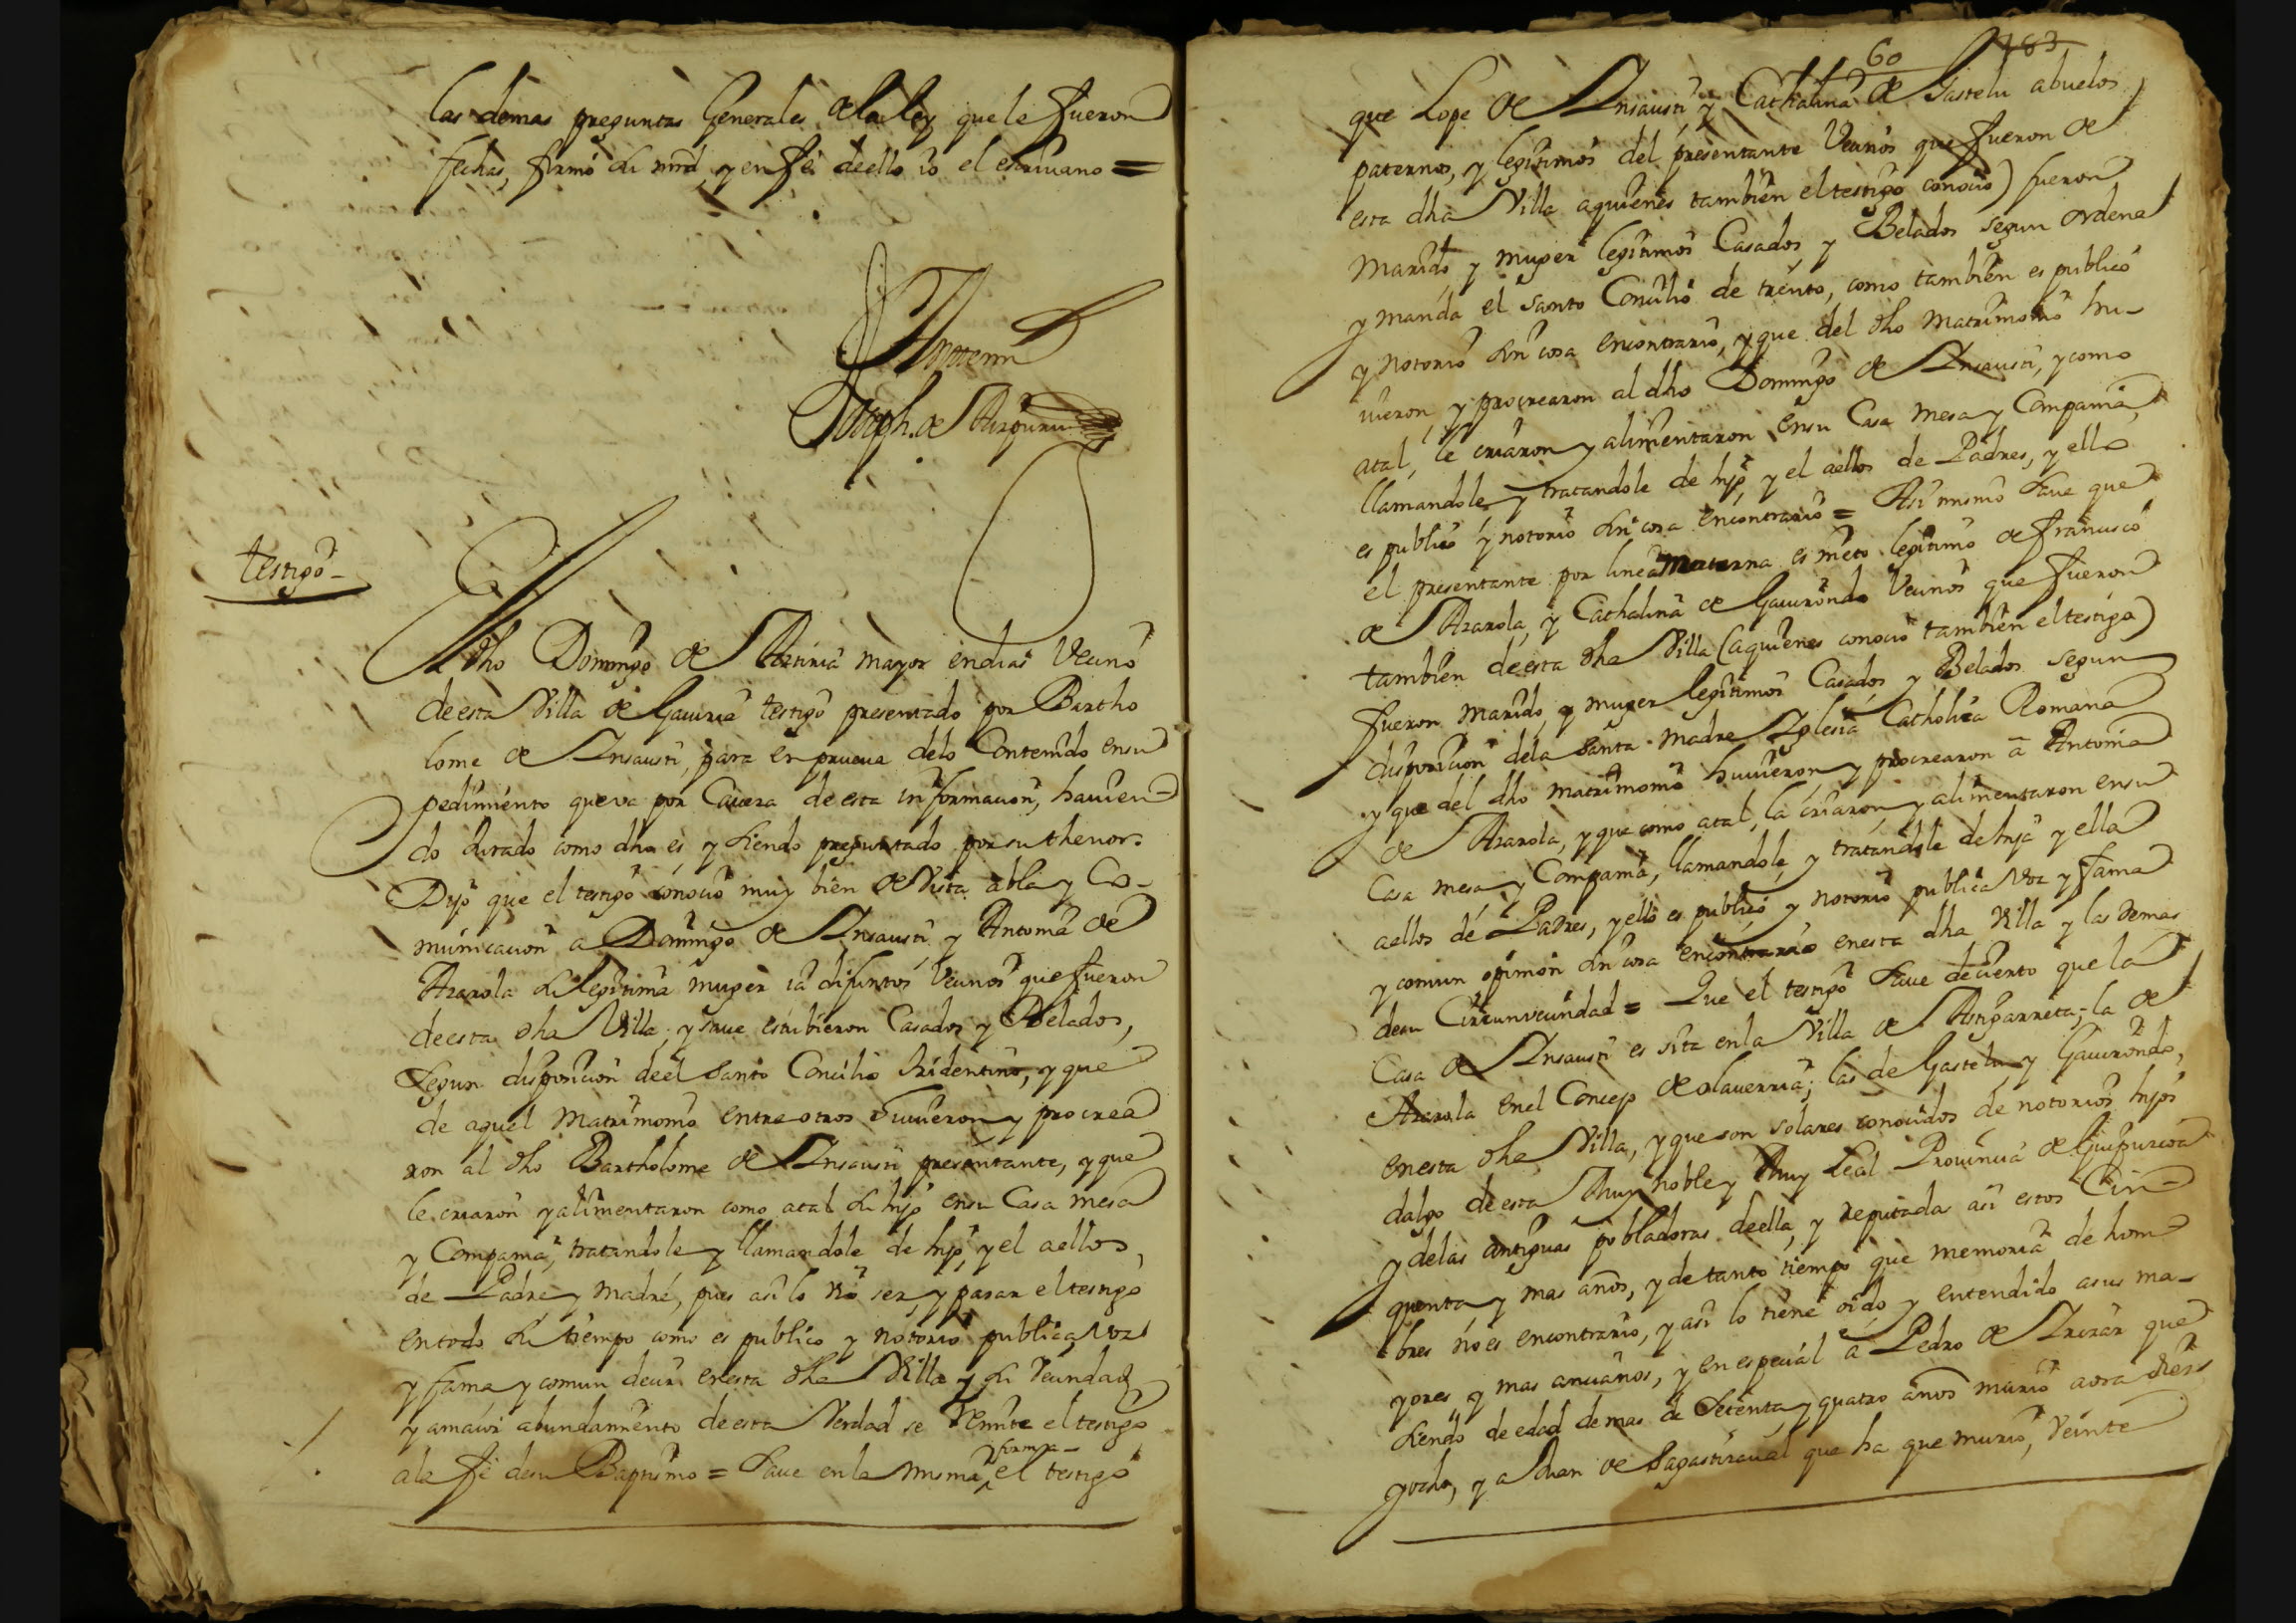 las demas preguntas Generales de la ley que le fueron
fechas, firmó su mrd, y en fee de ello io el escriuano =
Ante mi
Joseph. de Aizpuru
testigo
El dho Domingo de mayor en dias Vecino
de esta Villa de Gauiria testigo presentado por Bartho
lome de Insausti, para en prueua delo Contenido en su
pedimiento que va por Cauera de esta informacion, hauien-
do Jurado como dho es, y siendo preguntado por su thenor.
Dijo que el testigo conocio muy bien de Vista abla y Co-
municacion a Domingo de Insausti, y Antonia de
Ararola su legitima muger ia difuntos Vecinos que fueron
de esta dha Villa, y saue estubieron Casados y Velados,
segun disposicion de el Santo Concilio tridentino, y que
de aquel Matrimonio entre otros huuieron y procrea
ron al dho Bartholome de Insausti presentante, y que
le criaron y alimentaron como atal su hijo en su Casa mesa
y Compania, tratandole y llamandole de hijo, y el aellos,
de Padre y Madre, pues asi lo vio ser, y pasar el testigo
en todo su tiempo como es publico y notorio publica voz
y fama y comun decir en esta dha Villa y su Vecindad
y amaior abundamiento de esta Verdad se Remite el testigo
ala fe de su Baptismo = Saue en la misma forma el testigo
60 183
que Lope de Insausti y Cathalina de Gastelu abuelos
paternos, y legitimos del presentante Vecinos que fueron de
esta dha Villa aquienes tambien el testigo conocio) fueron
Marido y muger legitimos Casados y Belados segun ordena
y manda el santo Concilio de trento, como tambien es publico
y notorio sin cosa en contrario, y que del dho Matrimonio hu-
uieron, y procrearon al dho Domingo de Insausti, y como
atal, le criaron y alimentaron en su Casa mesa y Compania,
llamandole y tratandole de hijo, y el aellos de Padres, y ello
es publico y notorio sin cosa en contrario = Asi mismo saue que
el presentante por linea Materna es nieto legitimo de francisco
de Ararola, y Cathalina de Gauirondo Vecinos que fueron
tambien de esta dha Villa (aquienes conocio tambien el testigo)
fueron Marido, y muger legitimos Casados, y Belados segun
disposicion dela Santa Madre Iglesia Catholica Romana
y que del dho matrimonio huuieron, y procrearon à Antonia
de Ararola, y que como atal, la criaron, y alimentaron en su
Casa mesa y Compania, llamandole, y tratandole de hija y ella
aellos de Padres, y ello es publico, y notorio publica voz y fama
y comun opinion sin cosa en contrario en esta dha Villa y las demas
de su Circunvecindad = Que el testigo saue de cierto que la
Casa de Insausti es sita en la Villa de Astigarreta; la de
Ararola en el Concejo de olauerria; las de Gastelu y Gauirondo,
en esta dha Villa, y que son solares conocidos de notorios hijos
dalgo de esta Muy Noble y Muy Leal Prouincia de Guipuzcoa
y delas antiguas pobladoras de ella, y reputadas asi estos Cin-
quenta y mas años, y de tanto tiempo que memoria de hom
bres no es en contrario, y asi lo tiene oido, y entendido asus ma-
yores y mas ancianos, y en especial a Pedro de Irizar que
siendo de edad de mas de Setenta y quatro años murio aora diez
y ocho, y a Juan de Sagastizaual que ha que murio, Veinte